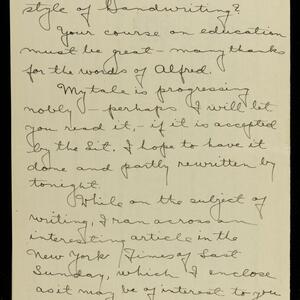 style of Handwriting?
Your course on education
must be great – many thanks
for the words of Alfred.
My tale is progressing
nobly – perhaps I will let
you read it, – if it is accepted
by the Lit. I hope to have it
done and partly rewritten by
tonight.
While on the subject of
writing, I ran across an
interesting article in the
New York Times of Last
Sunday, which I enclose
as it may be of interest to you